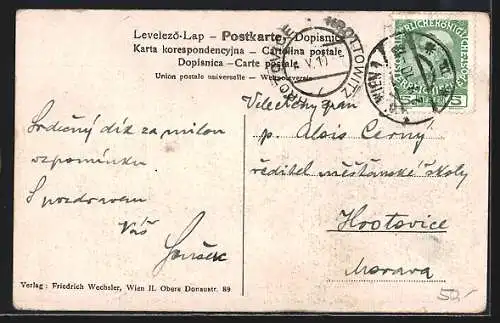 Levelező-Lap – Postkarte – Dopisnice
Karta korespondencyjna – Cartolina postale
Dopisnica – Carte postale
Union postale universelle – Weltpostverein
HROTTOWITZ
WIEN
5 5
Velectěný pan
p. Alois Černý
ředitel měšťanské školy
Hrotovice
Morava
Srdečný dík za milou
vzpomínku
S pozdravem
Váš
Verlag: Friedrich Wechsler, Wien II. Obere Donaustr. 89.
50,-